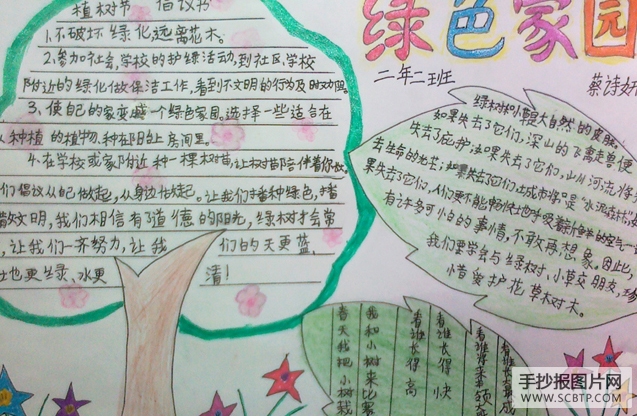 植树节 倡议书
1、不破坏绿化，远离花木。
2、参加社会，学校的护绿活动，到社区，学校
附近的绿化做保洁工作，看到不文明的行为及时劝阻。
3、使自己的家变成一个绿色家园。选择一些适合在
人种植的植物，种在阳台上，房间里。
4、在学校或家附近种一棵树苗，让树苗陪伴着你
们倡议从自己做起，从身边做起。让我们播种绿色，播
文明，我们相信有了道德的阳光，绿树才会常
，让我们一齐努力，让我们的天更蓝，
也更绿，水更清！
绿色家园
二年二班
蔡诗妍
绿树林和小草是大自然的皮肤。
如果失去了它们，深山的飞禽走兽便
失去了庇护；如果失去了它们，山川河流将
去生命的光芒；如果失去了它们，城市将是"水泥
果失去了它们，人们更不能畅快地呼吸着新鲜的空气
有许多可怕的事情，不敢再想象。因此，
我们要学会与绿树、小草交朋友，珍
惜爱护花草树木。
春天我把小树栽
我和小树来比赛
看谁长得高
看谁长得快
看谁将来
手抄报图片网
WWW.SCBTP.COM